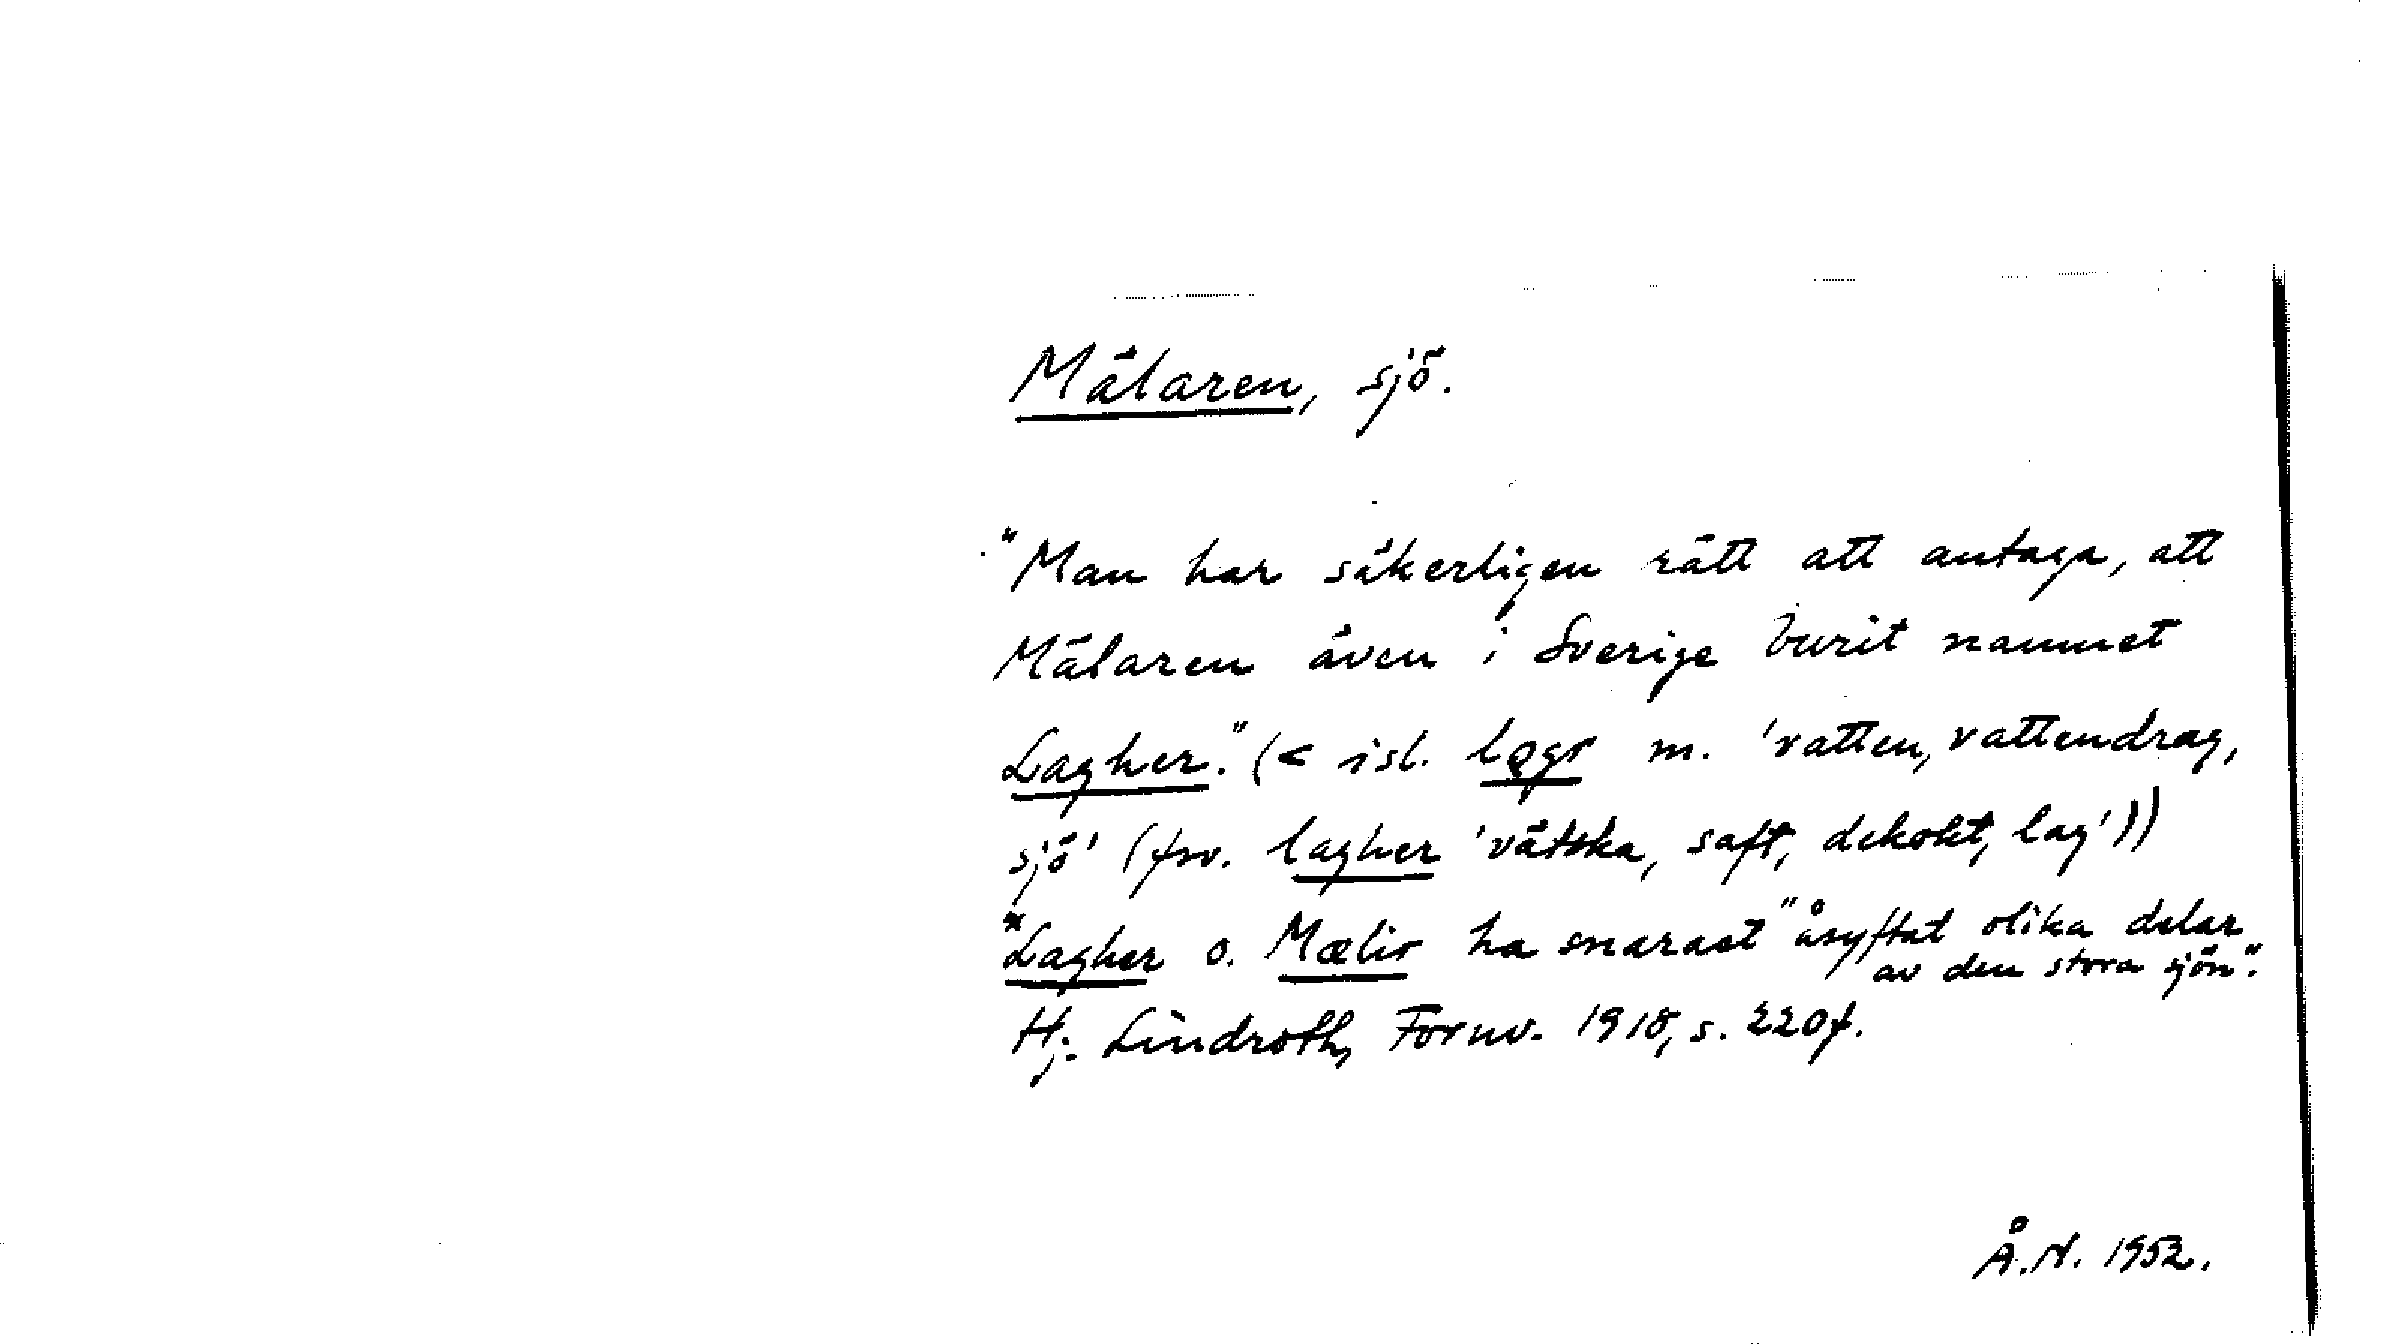 Mälaren, sjö.
"Man har säkerligen rätt att antaga, att
Mälaren även i Sverige burit namnet
Lagher." (< isl. lǫgr m. 'vatten, vattendrag,
sjö' (fsv. lagher 'vätska, saft, dekokt, lag'))
"Lagher o. Mælir ha snarast" åsyftat olika delar
av den stora sjön".
Hj. Lindroth, Fornv. 1918, s. 220f.
Å.N. 1952.